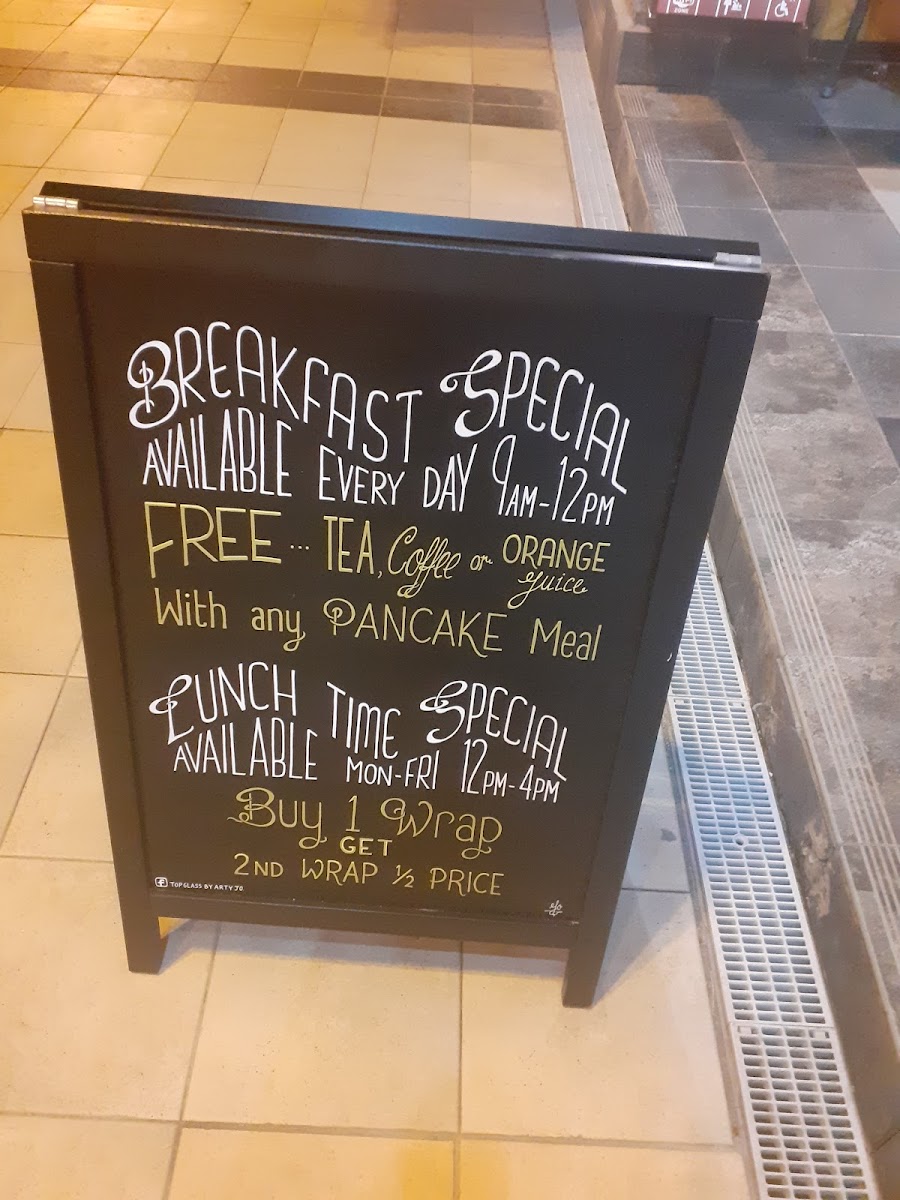 ZONE
BREAKFAST SPECIAL
AVAILABLE EVERY DAY 9AM-12PM
FREE... TEA, Coffee or ORANGE juice
With any PANCAKE Meal
LUNCH TIME SPECIAL
AVAILABLE MON-FRI 12PM-4PM
Buy 1 Wrap
GET
2ND WRAP ½ PRICE
TOPGLASS BY ARTY JO